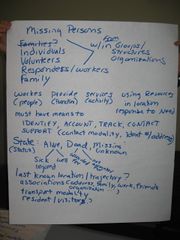 Missing Persons
Families? from
Individuals w/in Groups/
Volunteers Structures
Responders/workers Organizations
Family
Workers provide services using Resources
(people) (function) (activity) in location
response to Need)
must have means to
IDENTIFY, ACCOUNT, TRACK, CONTACT
SUPPORT (contact modality, ident # / address)
State: Alive, Dead, Missing
(status) Unknown
Sick well
injured
last known location/trajectory?
associations coworker, family, work, friends
transport modality
resident/visitor?